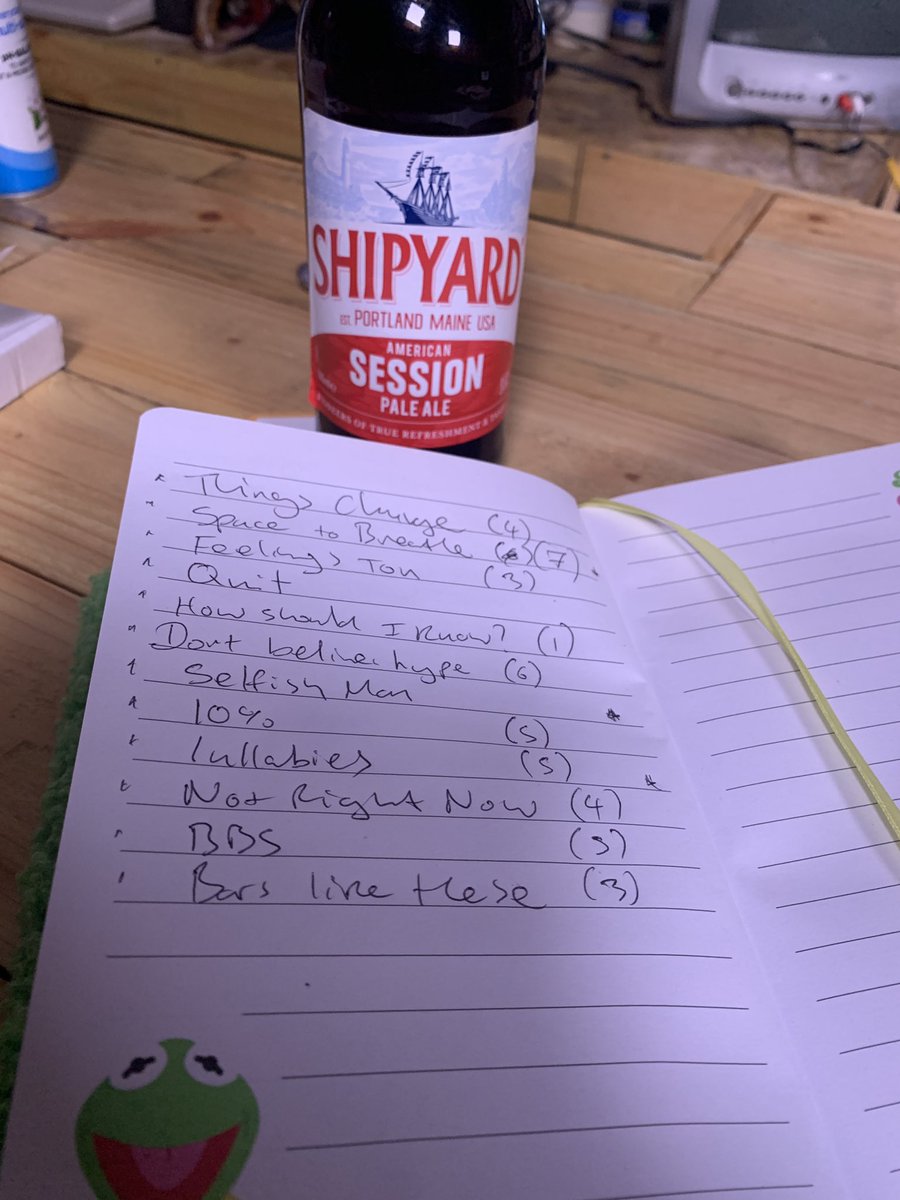 SHIPYARD
EST. PORTLAND MAINE USA
AMERICAN
SESSION
PALE ALE
OF TRUE REFRESHMENT &
Things Change (4)
Space to Breathe (7)
Feelings Ton (3)
Quit
How should I know? (1)
Dont believe hype (6)
Selfish Man
10% (5)
Lullabies (5)
Not Right Now (4)
BBS (3)
Bars like these (3)